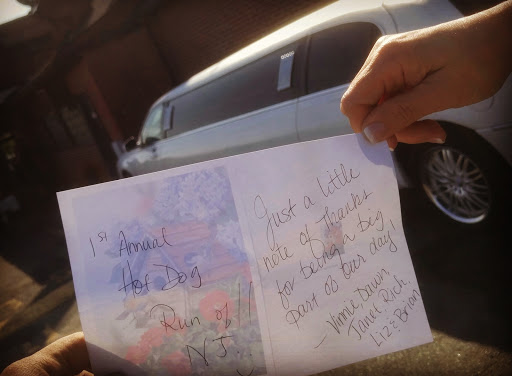 1st Annual
Hot Dog
Run of
NJ!
Just a little
note of Thanks
for being a big
part of our day!
- Vinnie, Dawn,
Janel, Rich,
Liz & Brian